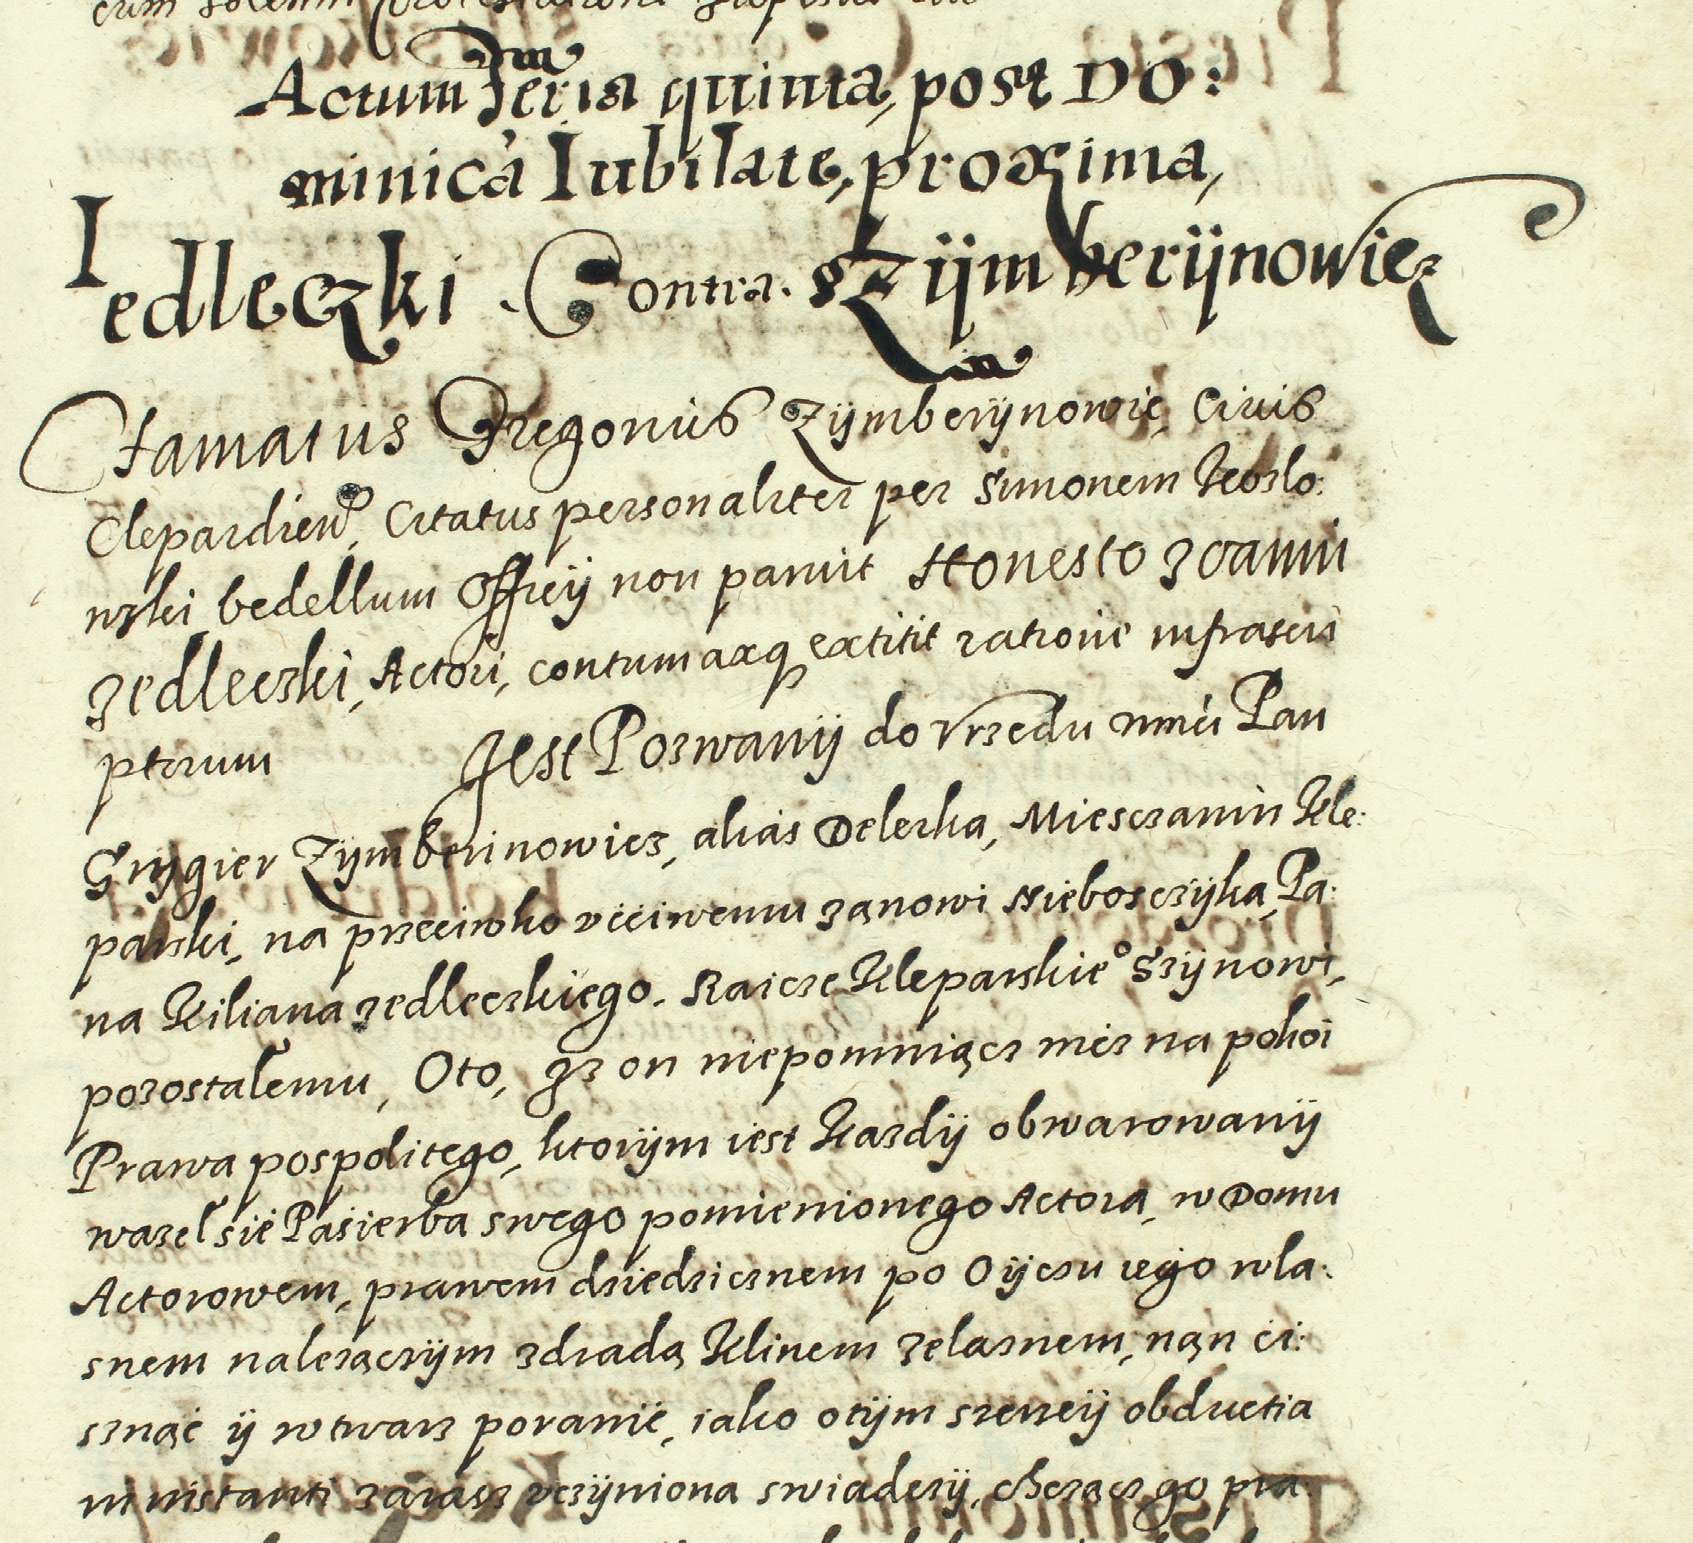 cum solenni protestatione
Actum Feria quinta, post Do:
minicã Iubilate, proxima,
Iedleczki . Contra . sZijmberijnowicz
Famatus Gregorius Zijmberijnowic, Civis
Clepardien, Citatus personaliter per Simonem Kozlo:
wski bedellum Offitij non paruit Honesto Joanni
Jedleczki, Actori, contumaxq extitit ratione infrascri
ptorum Jest Pozwanij do Vrzedu mnei Pan
Grzygier Zijmberinowicz, alias Delerka, Miesczanin Kle:
parski, na przeciwko vcciwemu Janowi Nieboscżijka, Pa:
na Kiliana Jedleczkiego. Raicze Kleparskie° Szijnowi,
pozostalemu, Oto, Jz on niepomniącz nicz na pokoi
Prawa pospolitego, ktorijm iest Kazdij obwarowanij
wazel sie Pasierba swego pomienionego Actora, w Domu
Actorowem, prawem dziedzicznem po Oijczu iego wla:
snem nalezączijm zdradą Klinem Zelaznem, nąn ci:
sznąć ij wtwarz poranić, iako otijm szerzeij obductia
in instanti zarasz vczijniona swiadczij, chcząc go pra: